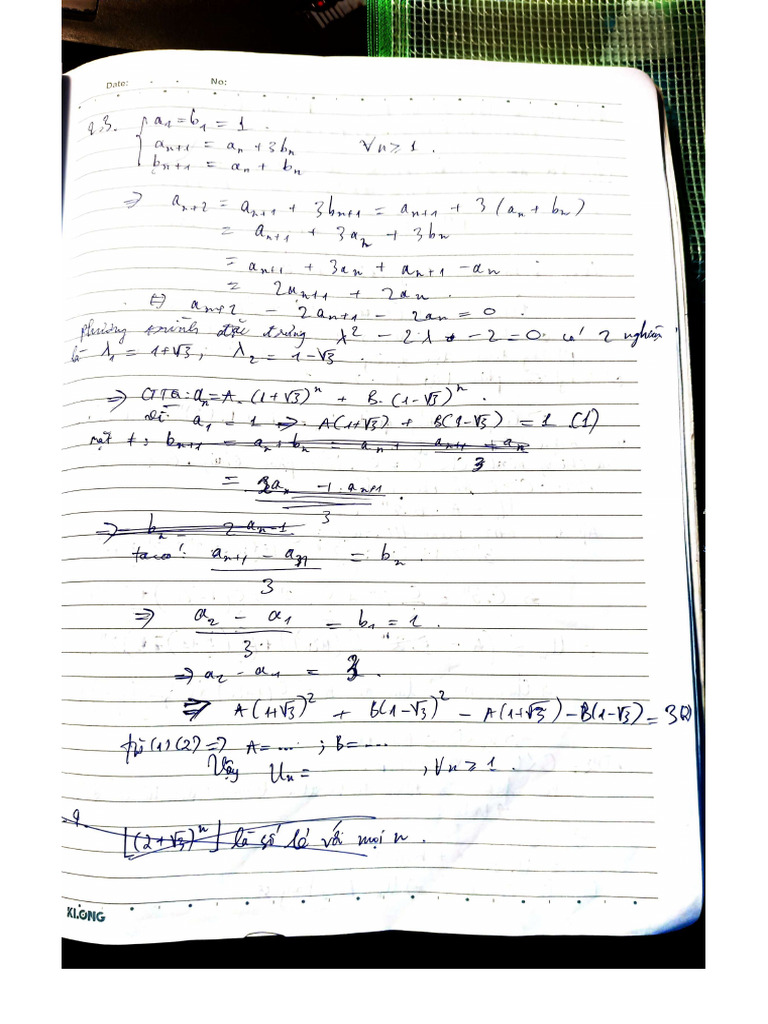 Date: No:
2.3. { a₁ = b₁ = 1.
aₙ₊₁ = aₙ + 3bₙ ∀n ≥ 1.
bₙ₊₁ = aₙ + bₙ
⇒ aₙ₊₂ = aₙ₊₁ + 3bₙ₊₁ = aₙ₊₁ + 3(aₙ + bₙ)
= aₙ₊₁ + 3aₙ + 3bₙ
= aₙ₊₁ + 3aₙ + aₙ₊₁ - aₙ
= 2aₙ₊₁ + 2aₙ.
⇔ aₙ₊₂ - 2aₙ₊₁ - 2aₙ = 0
phương trình đặc trưng λ² - 2λ - 2 = 0 có 2 nghiệm
là λ₁ = 1+√3; λ₂ = 1-√3.
⇒ CTTQ: aₙ = A.(1+√3)ⁿ + B.(1-√3)ⁿ.
a₁ = 1 ⇒ A(1+√3) + B(1-√3) = 1 (1)
mặt ≠: bₙ₊₁ = aₙ + bₙ = aₙ + (aₙ₊₁ + aₙ)/3
= (2aₙ - 1.aₙ₊₁)/3
⇒ bₙ = 2aₙ-1
ta có: (aₙ₊₁ - aₙ)/3 = bₙ
⇒ (a₂ - a₁)/3 = b₁ = 1.
⇒ a₂ - a₁ = 3.
⇒ A(1+√3)² + B(1-√3)² - A(1+√3) - B(1-√3) = 3 (2)
từ (1)(2) ⇒ A = ....; B = ....
Vậy Uₙ = , ∀n ≥ 1.
⌊(2+√3)ⁿ⌋ là số lẻ với mọi n.
KLONG